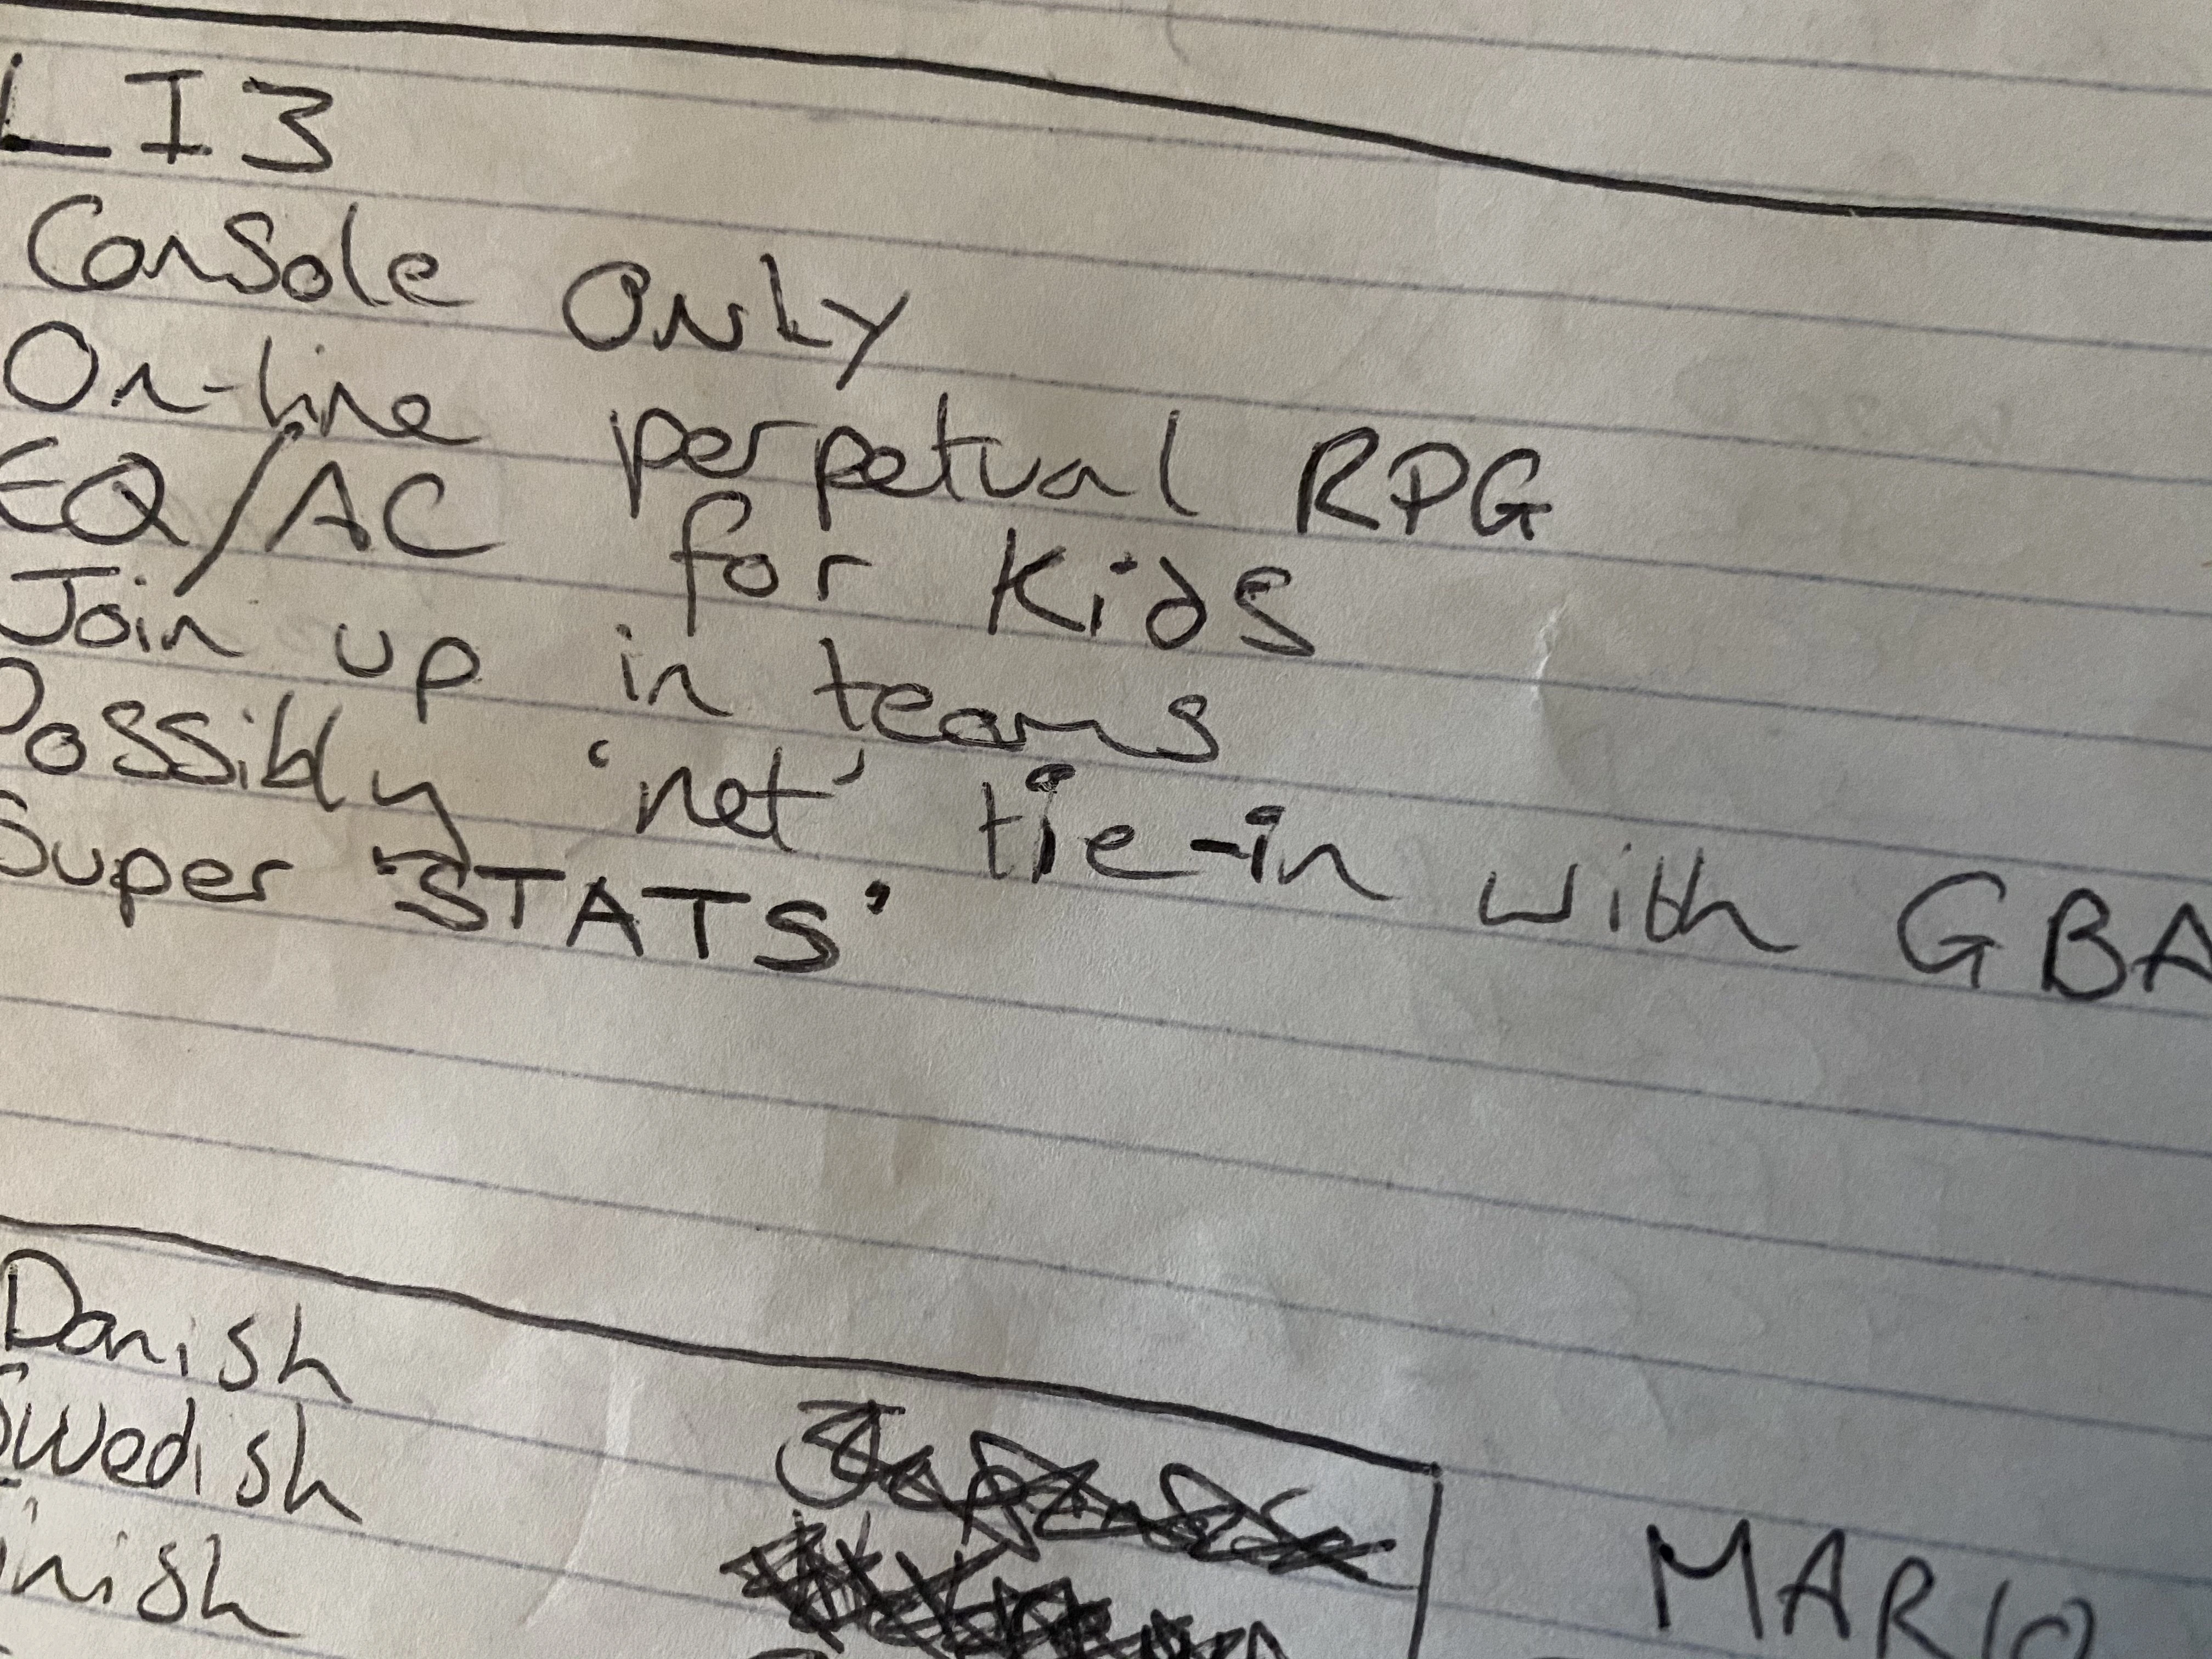 LI3
Console Only
On-line perpetual RPG
EQ/AC for Kids
Join up in teams
Possibly 'net' tie-in with GBA
Super 'STATS'
Danish
Swedish
inish
MARIO